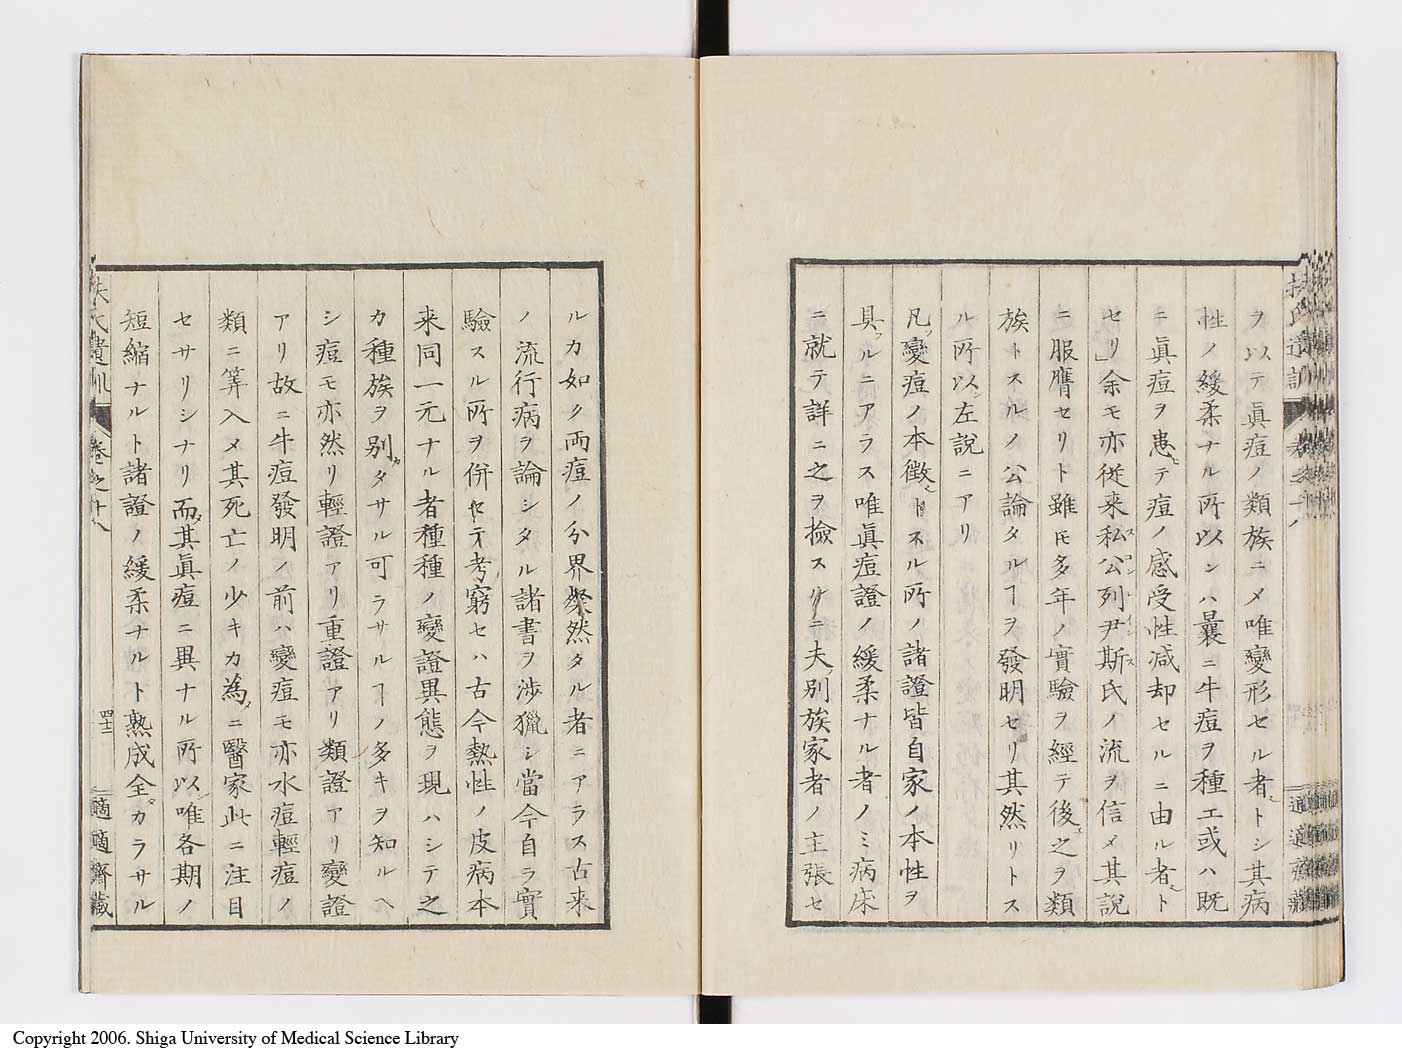 ヲ以テ眞痘ノ類族ニメ唯變形セル者トシ其病
性ノ緩柔ナル所以ンハ曩ニ牛痘ヲ種エ或ハ既
ニ眞痘ヲ患テ痘ノ感受性減却セルニ由ル者ト
セリ」余モ亦従来私公列尹斯氏ノ流ヲ信メ其説
ニ服膺セリト雖𪜈多年ノ實驗ヲ經テ後之ヲ類
族トスルノ公論タルヿヲ發明セリ其然リトス
ル所以左説ニアリ
凡變痘ノ本徴トスル所ノ諸證皆自家ノ本性ヲ
具ルニアラス唯眞痘證ノ緩柔ナル者ノミ病床
ニ就テ詳ニ之ヲ撿スルニ夫別族家者ノ主張セ
扶氏遺訓
卷之十八
適適齋藏
ルカ如ク両痘ノ分界粲然タル者ニアラス古来
ノ流行病ヲ論シタル諸書ヲ渉獵シ當今自ラ實
驗スル所ヲ併セテ考窮セハ古今熱性ノ皮病本
来同一元ナル者種種ノ變證異態ヲ現ハシテ之
カ種族ヲ別タサル可ラサルヿノ多キヲ知ルヘ
シ痘モ亦然リ輕證アリ重證アリ類證アリ變證
アリ故ニ牛痘發明ノ前ハ變痘モ亦水痘輕痘ノ
類ニ筭入メ其死亡ノ少キカ為ニ醫家此ニ注目
セサリシナリ而其眞痘ニ異ナル所以唯各期ノ
短縮ナルト諸證ノ緩柔ナルト熟成全カラサル
扶氏遺訓
卷之十八
四十二
適適齋藏
Copyright 2006. Shiga University of Medical Science Library